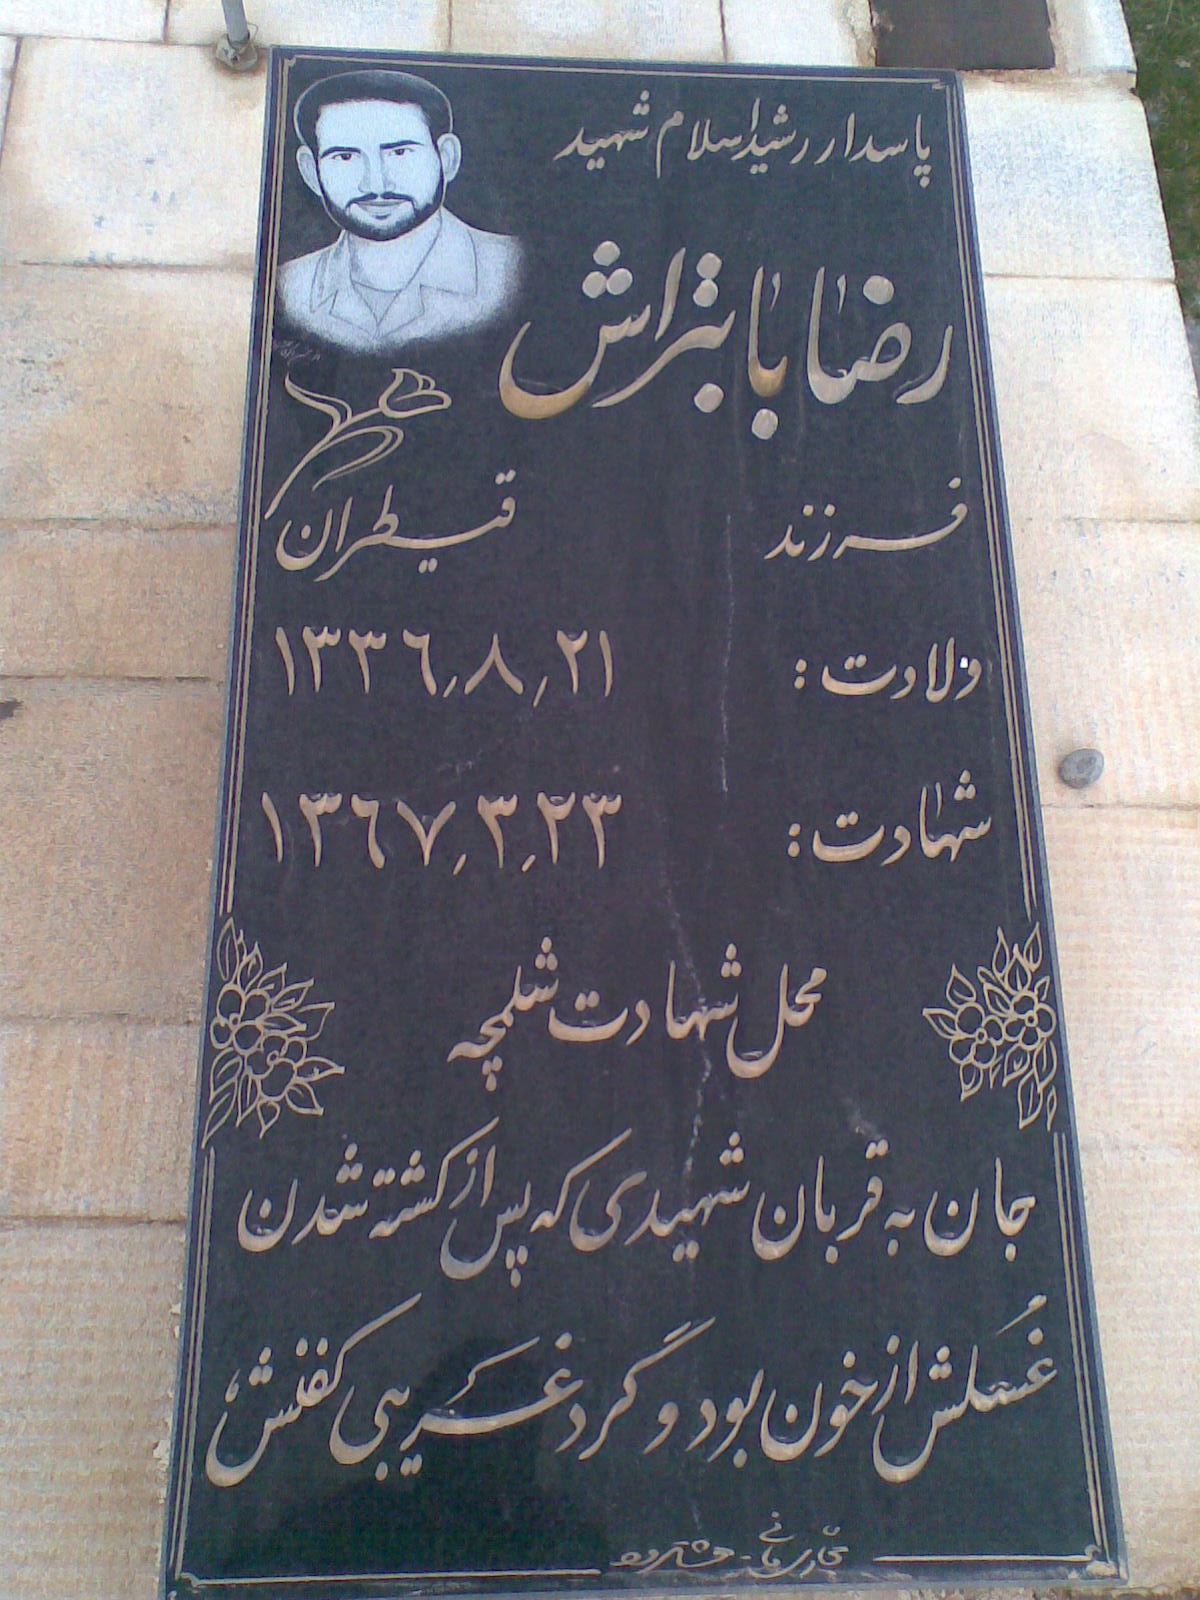 پاسدار رشید اسلام شهید
رضا بابتراش
فرزند قیطران
ولادت: ۱۳۳۶٫۸٫۲۱
شهادت: ۱۳۶۷٫۳٫۲۳
محل شهادت شلمچه
جان به قربان شهیدی که پس از کشته شدن
غسلش از خون بود و گرد غریبی کفنش